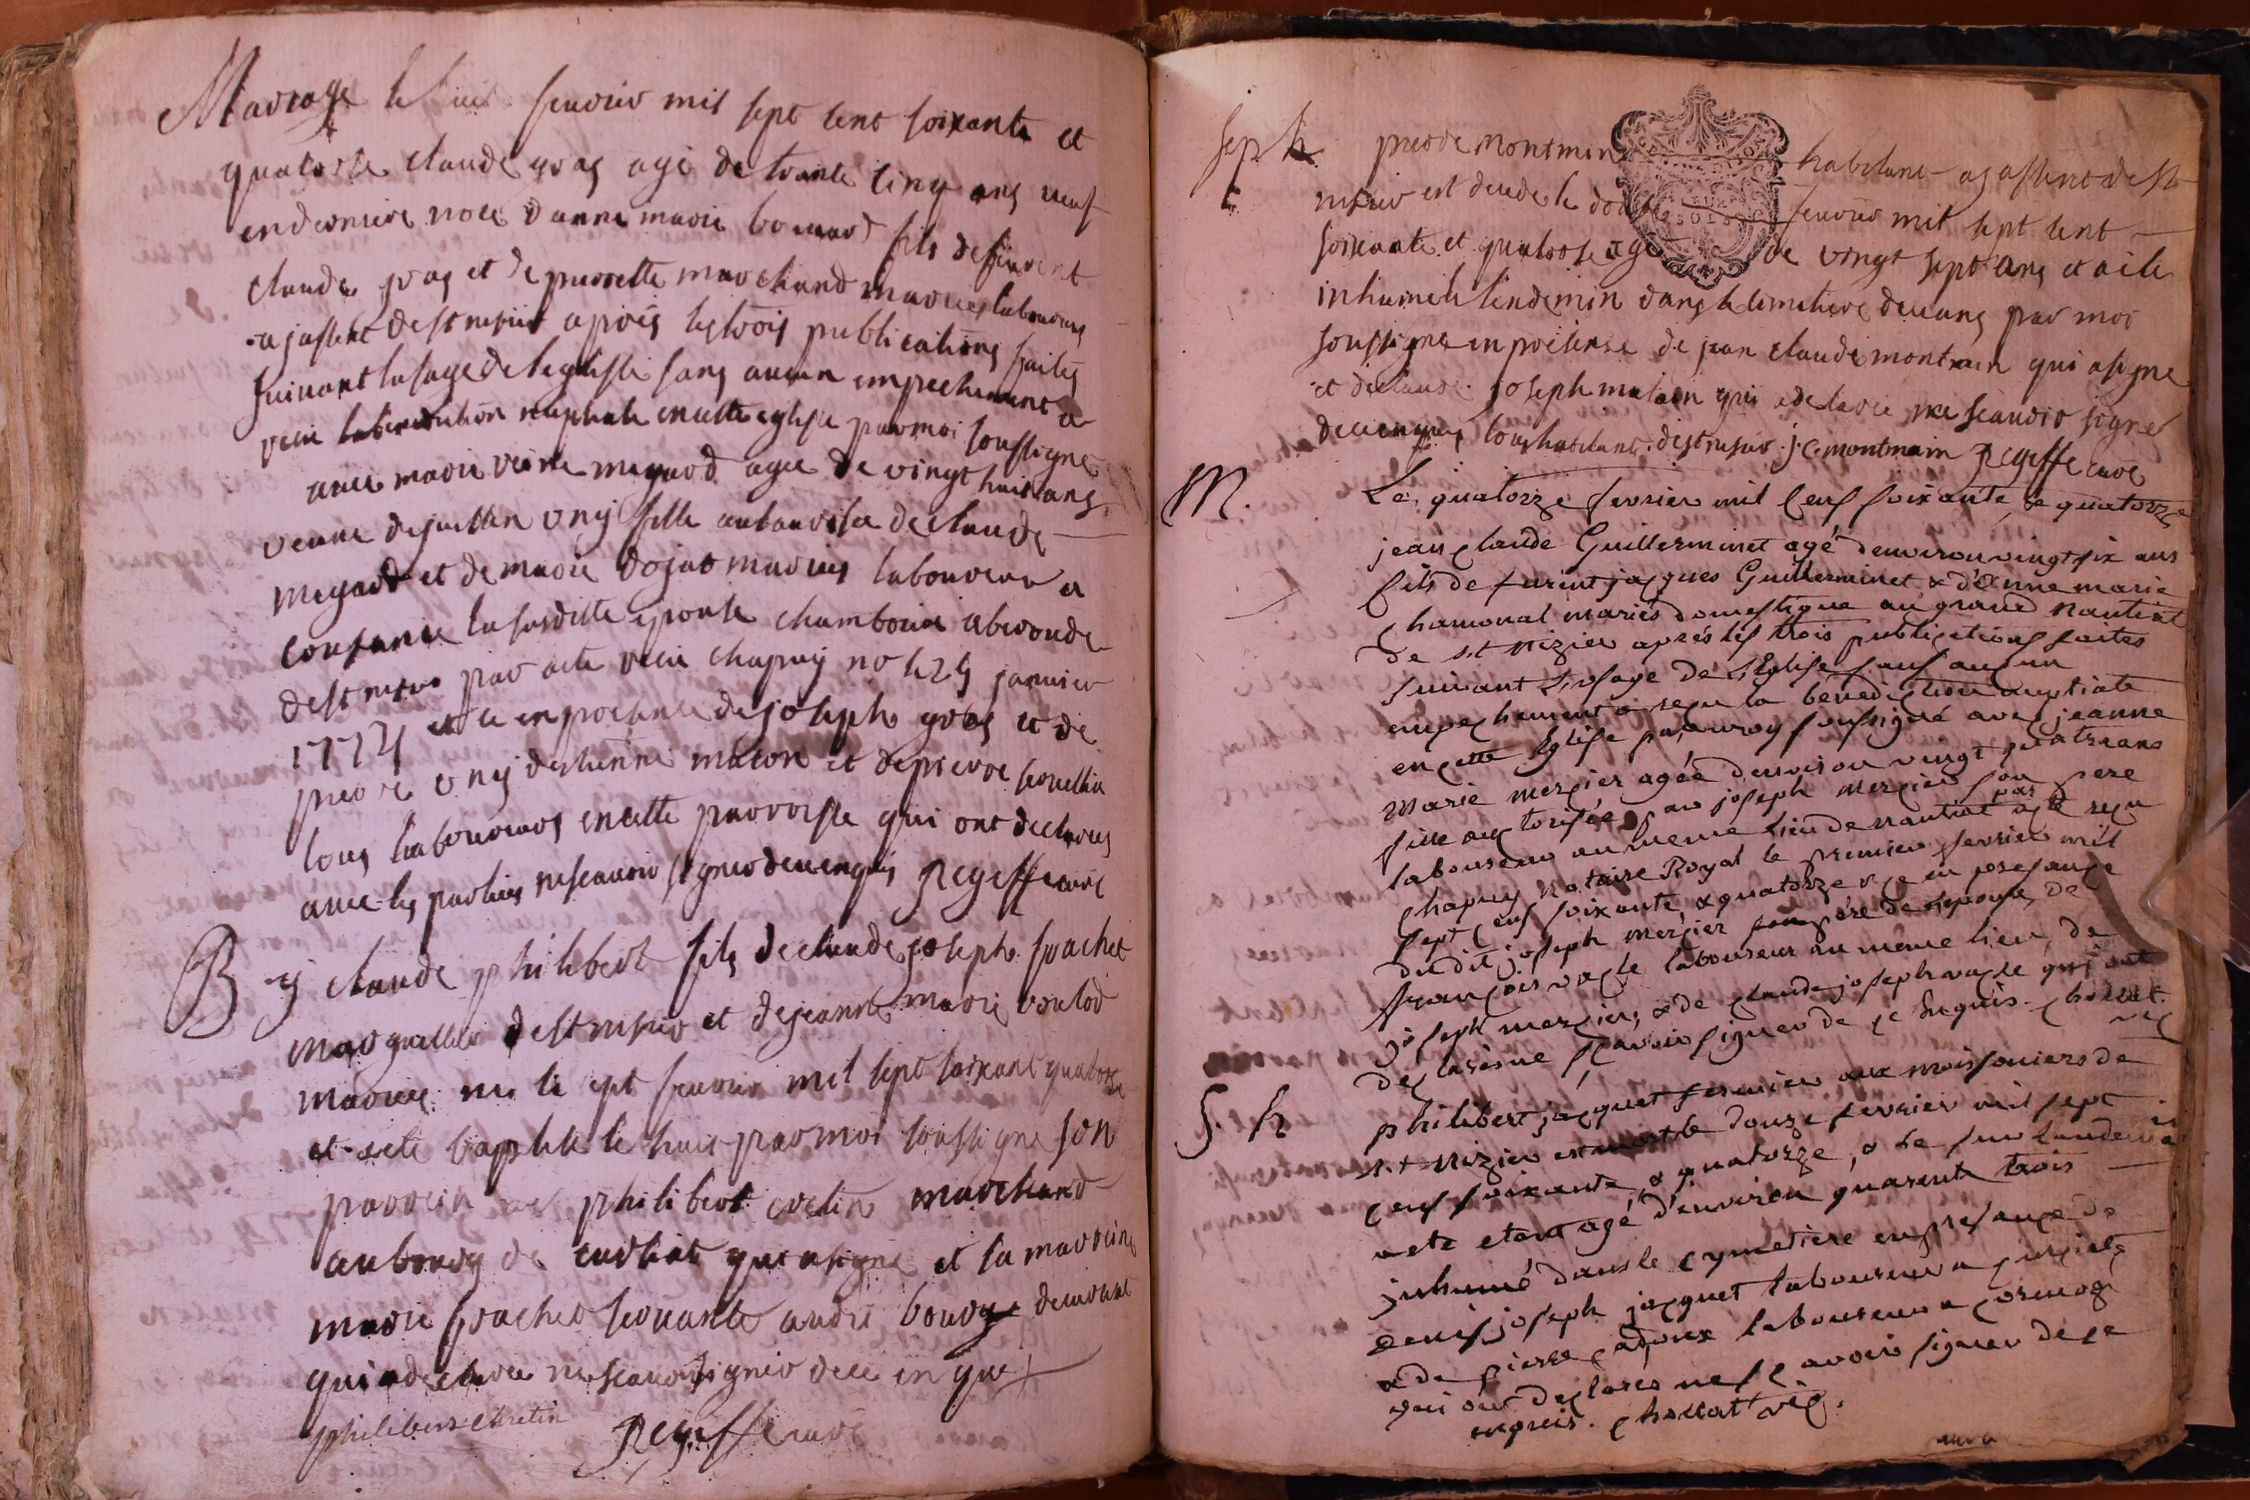 Mariage le huit fevrier mil sept cent soixante et
quatorse claude gras agé de trante cinq ans veuf
en derniere noce danne marie bouuard fils defeuvent
claude gras et de pierrette marchand mariés laboureurs
agassent de st nisier aprés les trois publications faites
suivant lusage de leglise sans aucun empechement a
recu la benediction nuptiale en cette eglise par moi soussigné
avec marie reine megard agee de vingt huit ans
veuve de juillen vny fille de claude
megard et de marie mariés laboureur
la susditte epouse chamboire
de st nisier par acte recu chapuy no le 25 janvier
1774 et ce en presence de joseph gras et de
pierre vny destienne maton et de pierre
tous laboureurs en cette parroisse qui ont declarés
avec les parties ne scavoir signer de ce enquis Regeffe curé
B claude philibert fils de claude joseph frachet
marguellier de st nisier et de jeanne marie voulod
mariés né le sept fevrier mil sept soixante quatorse
et a ete baptisé le huit par moi soussigné son
parrein philibert cretin marchand
au bourg de curtiat qui a signé et sa marreine
marie frachet servante andré bourg demeurant
qui a declaree ne scavoir signer de ce enquis
philibert cretin Regeffe curé
seph pierre montmin habitant agassent de st
nisier est decede le douse fevrier mil sept cent
soixante et quatorse age de vingt sept ans et a ete
inhumé le lendemin dans le cimetiere de ceans par moi
soussigné en presence de jean claude montmain qui a signé
et de claude joseph mataon qui a declaré ne scavoir signer
de ce enquis tous habitants de st nisier j c montmain Regeffe curé
M. Le quatorze fevrier mil cens soixante, & quatorze
jean claude Guillerminet agé denviron vingt six ans
fils de furent jacques Guillerminet & d'Anne marie
chamonal mariés domestique au grand nantiat
de st Nizier aprés les trois publications faites
suivant L'usage de L'Eglise sans aucun
empechement a reçu la bénédiction nuptiale
en cette Eglise par moy soussigné avec jeanne
marie mercier agée denviron vingt quatre ans
fille authorisée par joseph mercier son pere
laboureur au meme lieu de nantiat acte reçu par
chapuy Notaire Royal le premier fevrier mil
sept cens soixante, & quatorze & ce en presance
dudit joseph mercier pere de l'epouse, de
françois vacle laboureur au même lieu, de
joseph mercier, & de claude joseph vacle qui ont
declarés ne sçavoir signer de ce Enquis. chossat
vic
S. h philibert jacquet fermier aux moissonniers de
st Nizier est mort le douze fevrier mil sept
cens soixante, & quatorze, & le sur landemin
a ete etant agé d'environ quarente trois
inhumé dans le cymetiere en presance de
denis joseph jacquet laboureur a curciat,
& de pierre cadoux laboureur a cormoz
qui ont declarés ne sçavoir signer de ce
enquis. chossat vic.